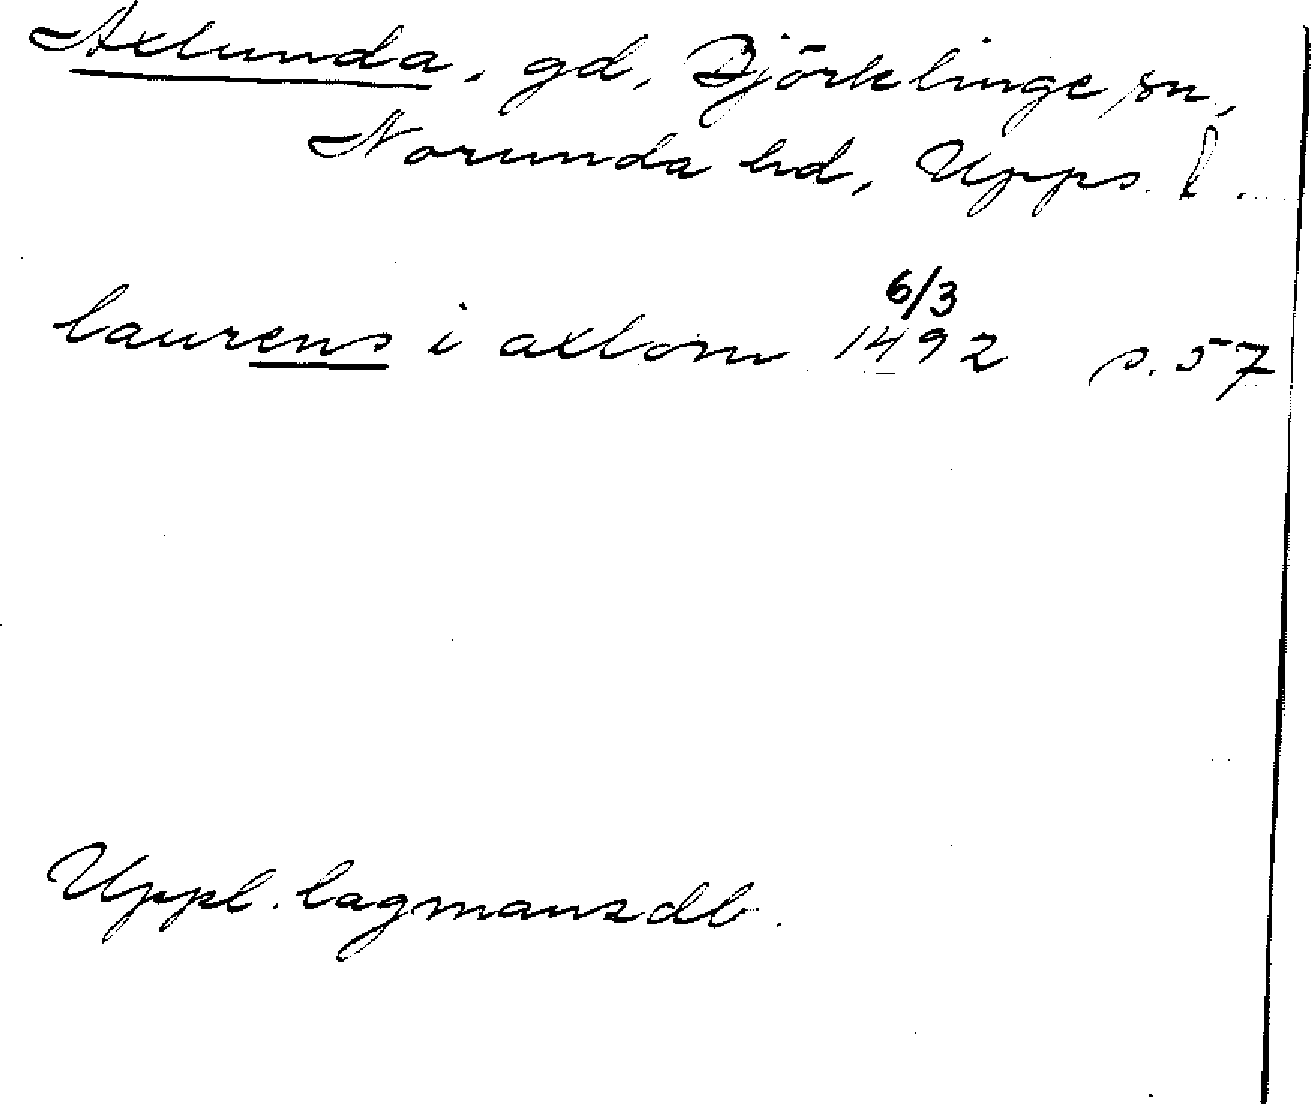 Axlunda, gd, Björklinge sn,
Norunda hd, Upps. l.
laurens i axlom 6/3 1492 s. 57
Uppl. lagmansdb.